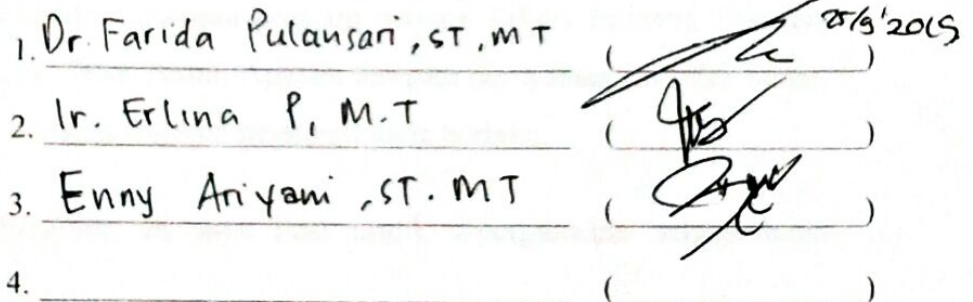 1. Dr. Farida Pulansari, ST, MT ( ) 25/9'2015
2. Ir. Erlina P, M.T ( )
3. Enny Ariyani, ST. MT ( )
4. ( )